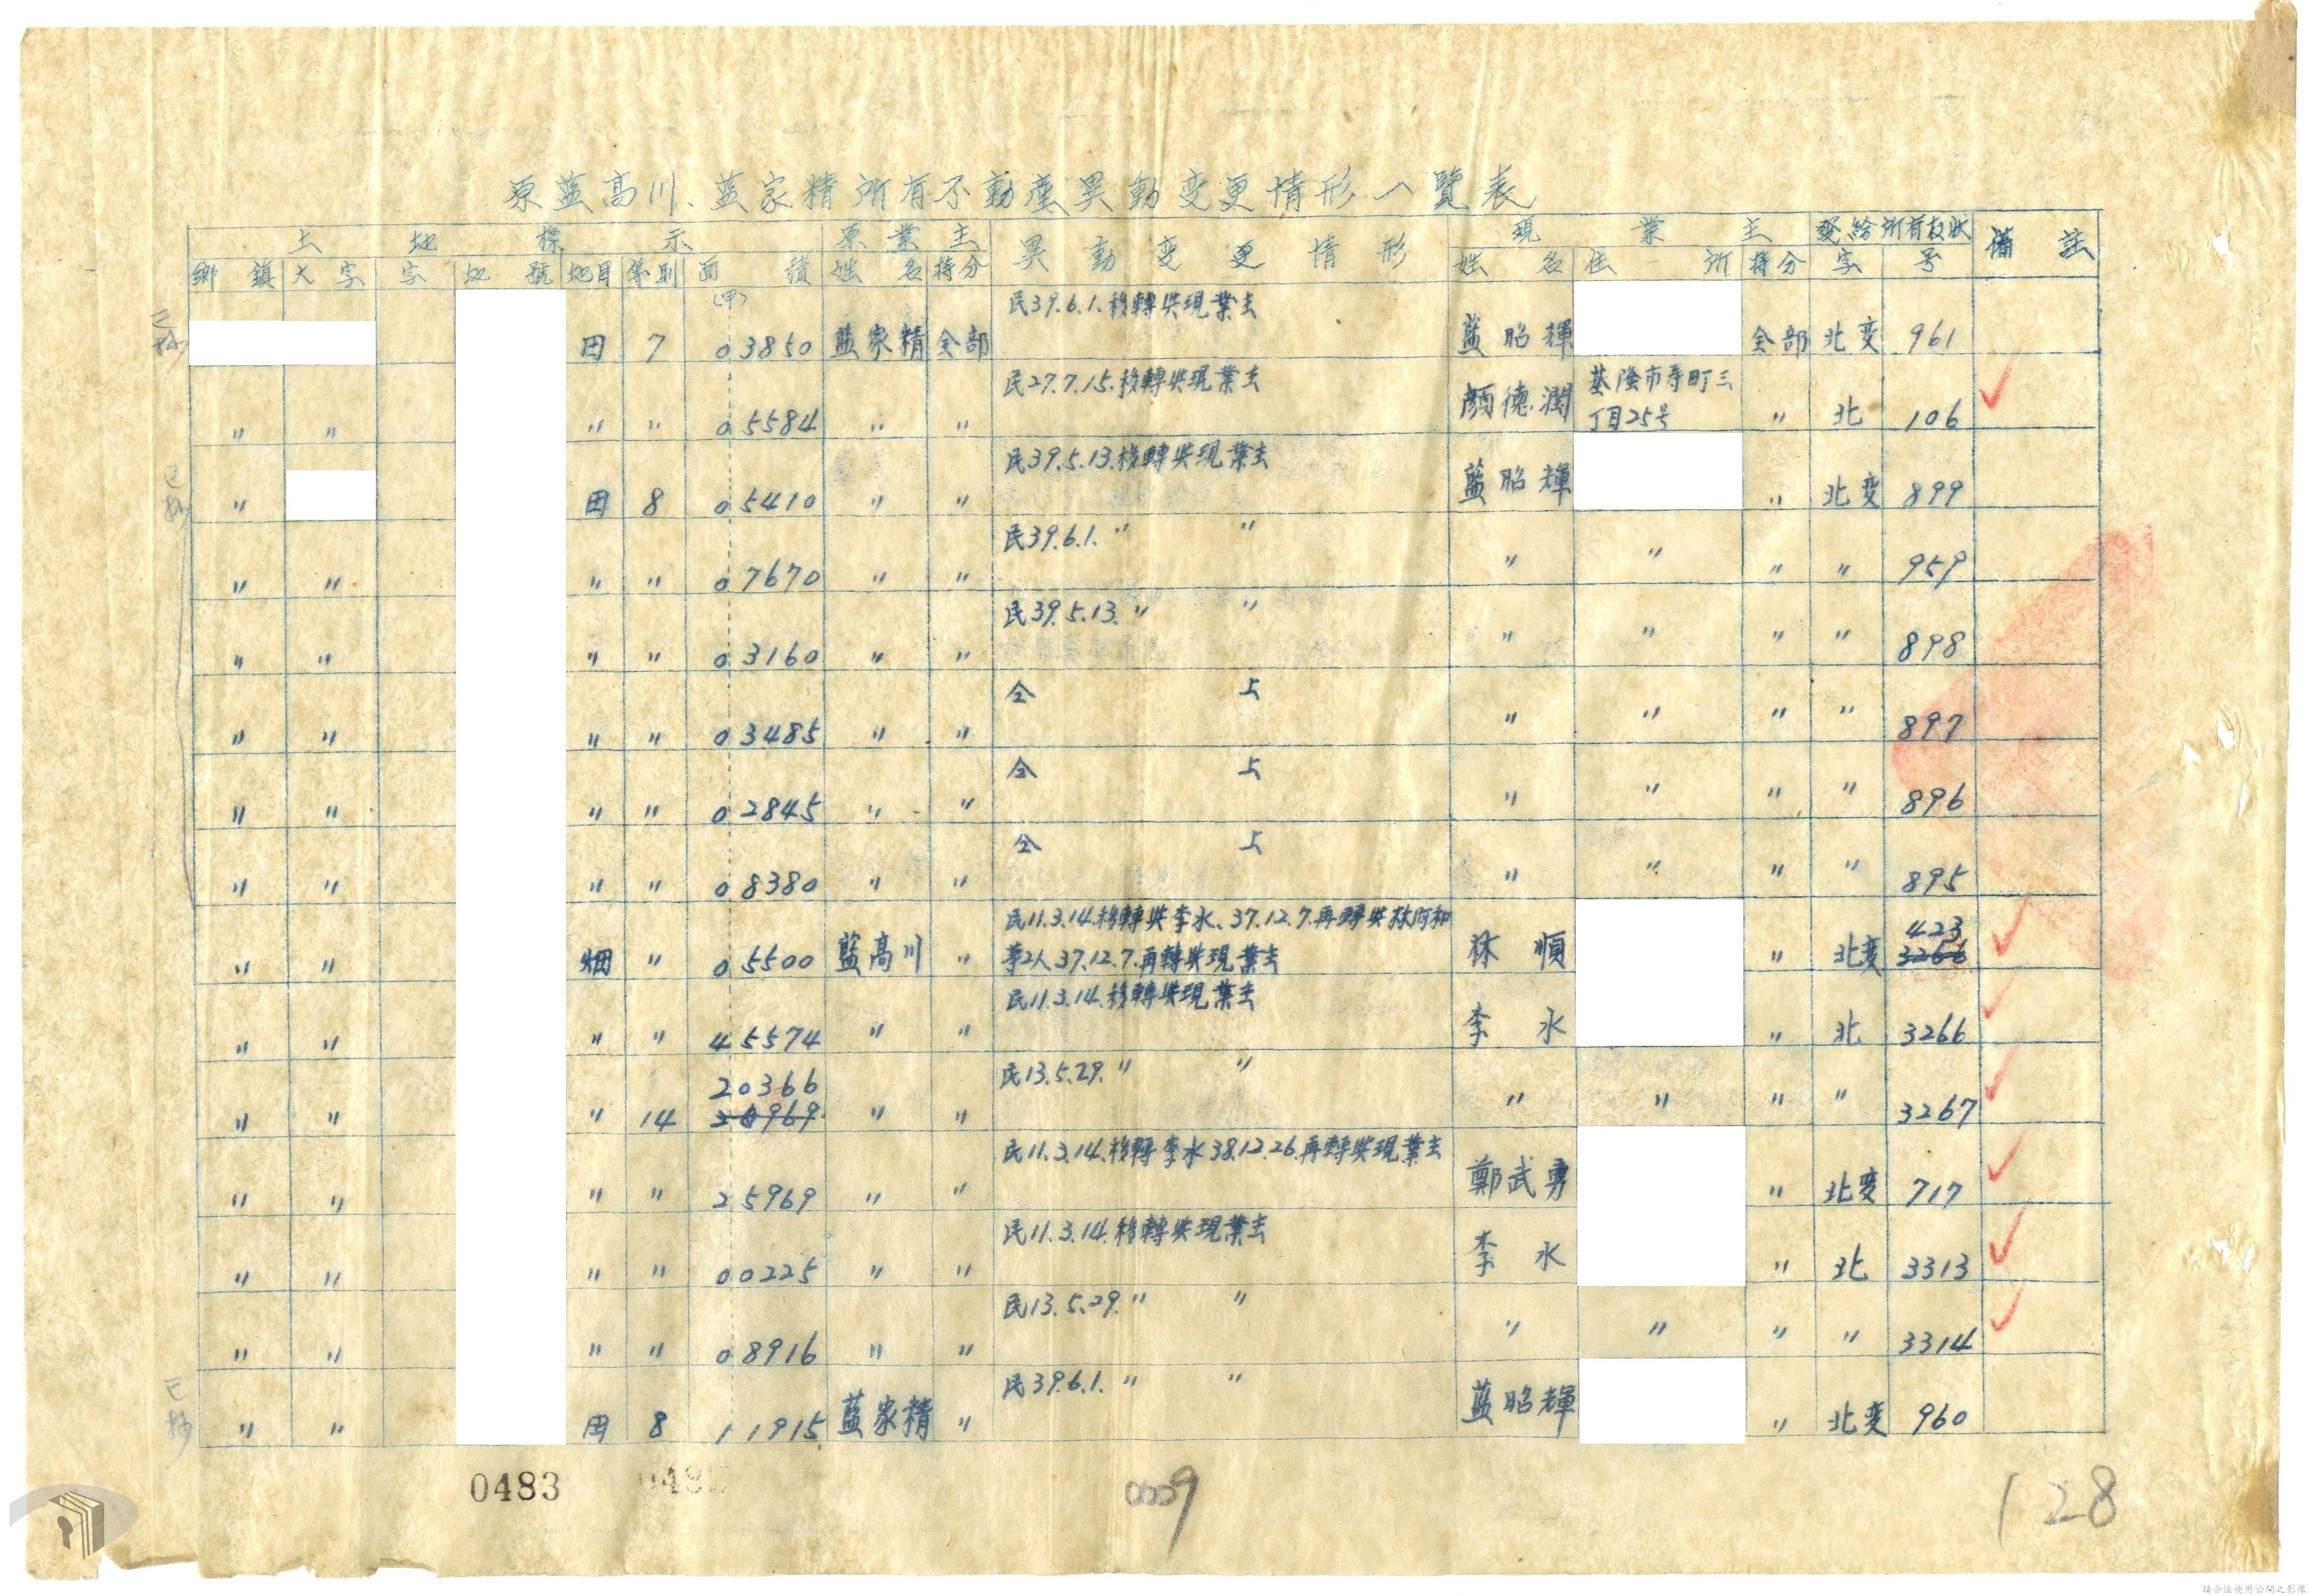 原藍高川、藍家精所有不動産異動変更情形一覽表
土地標示 原業主 異動変更情形 現業主 發給所有权狀 備註
鄉鎮 大字 字 地號 地目 等則 面積 姓名 持分 姓名 住所 持分 字 号
(甲)
民39.6.1.移轉與現業主
田 7 03850 藍家精 全部 藍昭輝 全部 北変 961
民27.7.15.移轉與現業主
〃 〃 〃 〃 05584 〃 〃 顏德潤 基隆市寿町三丁目25号 〃 北 106
民39.5.13.移轉與現業主
〃 田 8 05410 〃 〃 藍昭輝 〃 北変 899
民39.6.1. 〃 〃
〃 〃 〃 〃 07670 〃 〃 〃 〃 〃 〃 959
民39.5.13. 〃 〃
〃 〃 〃 〃 03160 〃 〃 〃 〃 〃 〃 898
仝上
〃 〃 〃 〃 03485 〃 〃 〃 〃 〃 〃 897
仝上
〃 〃 〃 〃 02845 〃 〃 〃 〃 〃 〃 896
仝上
〃 〃 〃 〃 08380 〃 〃 〃 〃 〃 〃 895
民11.3.14.移轉與李永、37.12.7.再轉與林阿和
等2人37.12.7.再轉與現業主
423
〃 〃 畑 〃 05500 藍高川 〃 林順 〃 北変 3266
民11.3.14.移轉與現業主
〃 〃 〃 〃 45574 〃 〃 李永 〃 北 3266
民13.5.29. 〃 〃
20366
〃 〃 〃 14 〃 〃 〃 〃 〃 〃 3267
民11.3.14.移轉李永38.12.26.再轉與現業主
〃 〃 〃 〃 25969 〃 〃 鄭武勇 〃 北変 717
民11.3.14.移轉與現業主
〃 〃 〃 〃 00225 〃 〃 李永 〃 北 3313
民13.5.29. 〃 〃
〃 〃 〃 〃 08916 〃 〃 〃 〃 〃 〃 3314
民39.6.1. 〃 〃
〃 〃 田 8 11915 藍家精 〃 藍昭輝 〃 北変 960
0483
0009
128
請合法使用公開之影像